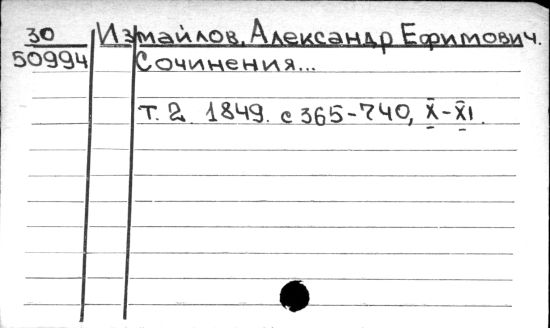 30 Измайлов, Александр Ефимович.
50994 Сочинения...
Т. 2. 1849. с 365-740, X-XI.